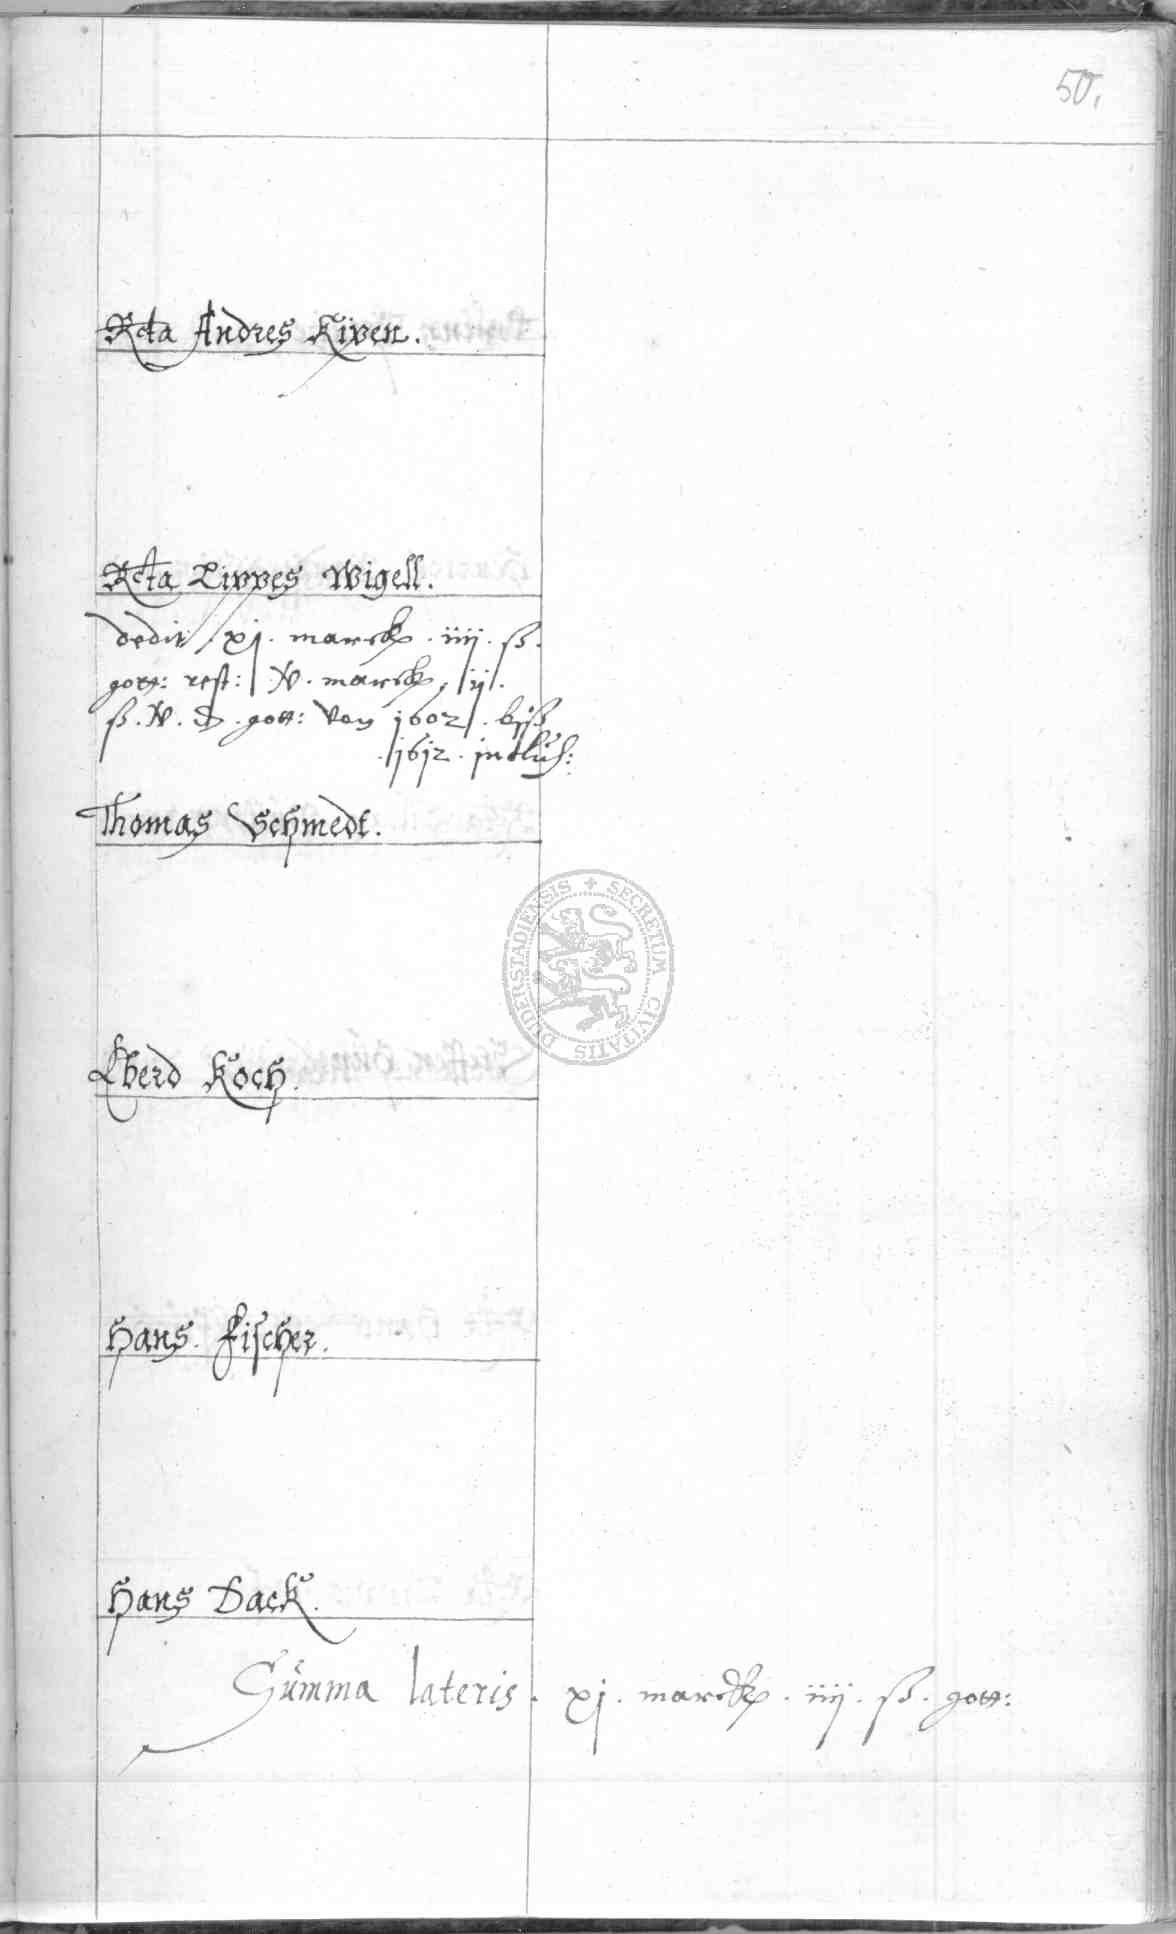 50.
Rcta Andres Kÿven.
Rcta Lippes Wigell.
dedit xj. marck. iiij. ß.
gott: rest: v. marck. ij.
ß. v. d. gott: von 1602. biß
.1612. incluß:
Thomas Schmedt.
Eberd Koch.
Hans. Fischer.
Hans Back.
Summa lateris. xj. marck. iiij. ß. gott:
DUDERSTADIENSIS + SECRETUM CIVITATIS